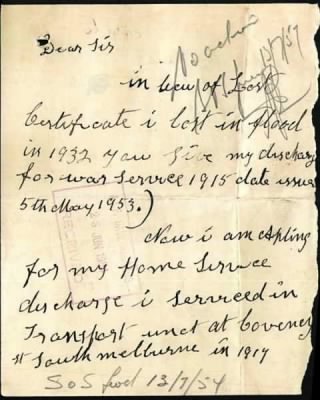 Dear Sir
in lieu of Lost
Certificate i lost in flood
in 1932 you Give my discharge
for war service 1915 date issue
5th May 1953.)
Now i am apling
for my Home Service
discharge i serviced in
Transport unet at Coveney
st South melburne in 1917
SoS fwd 13/7/54